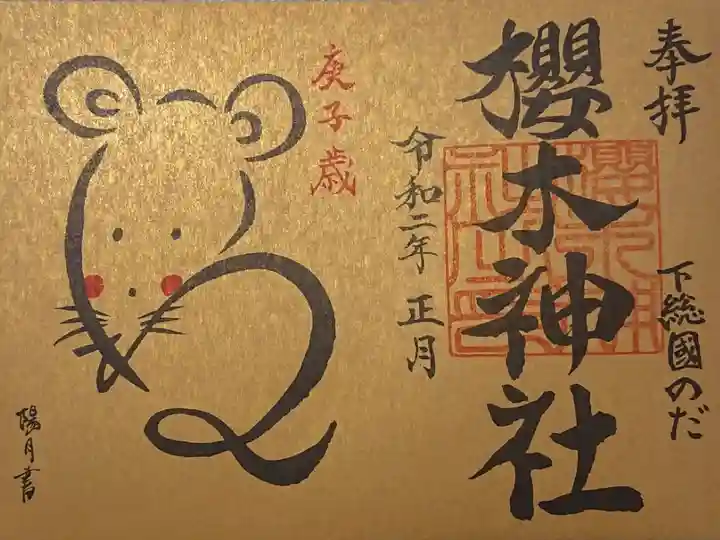 奉拝
下総國のだ
櫻木神社
令和二年 正月
庚子歳
陽月書